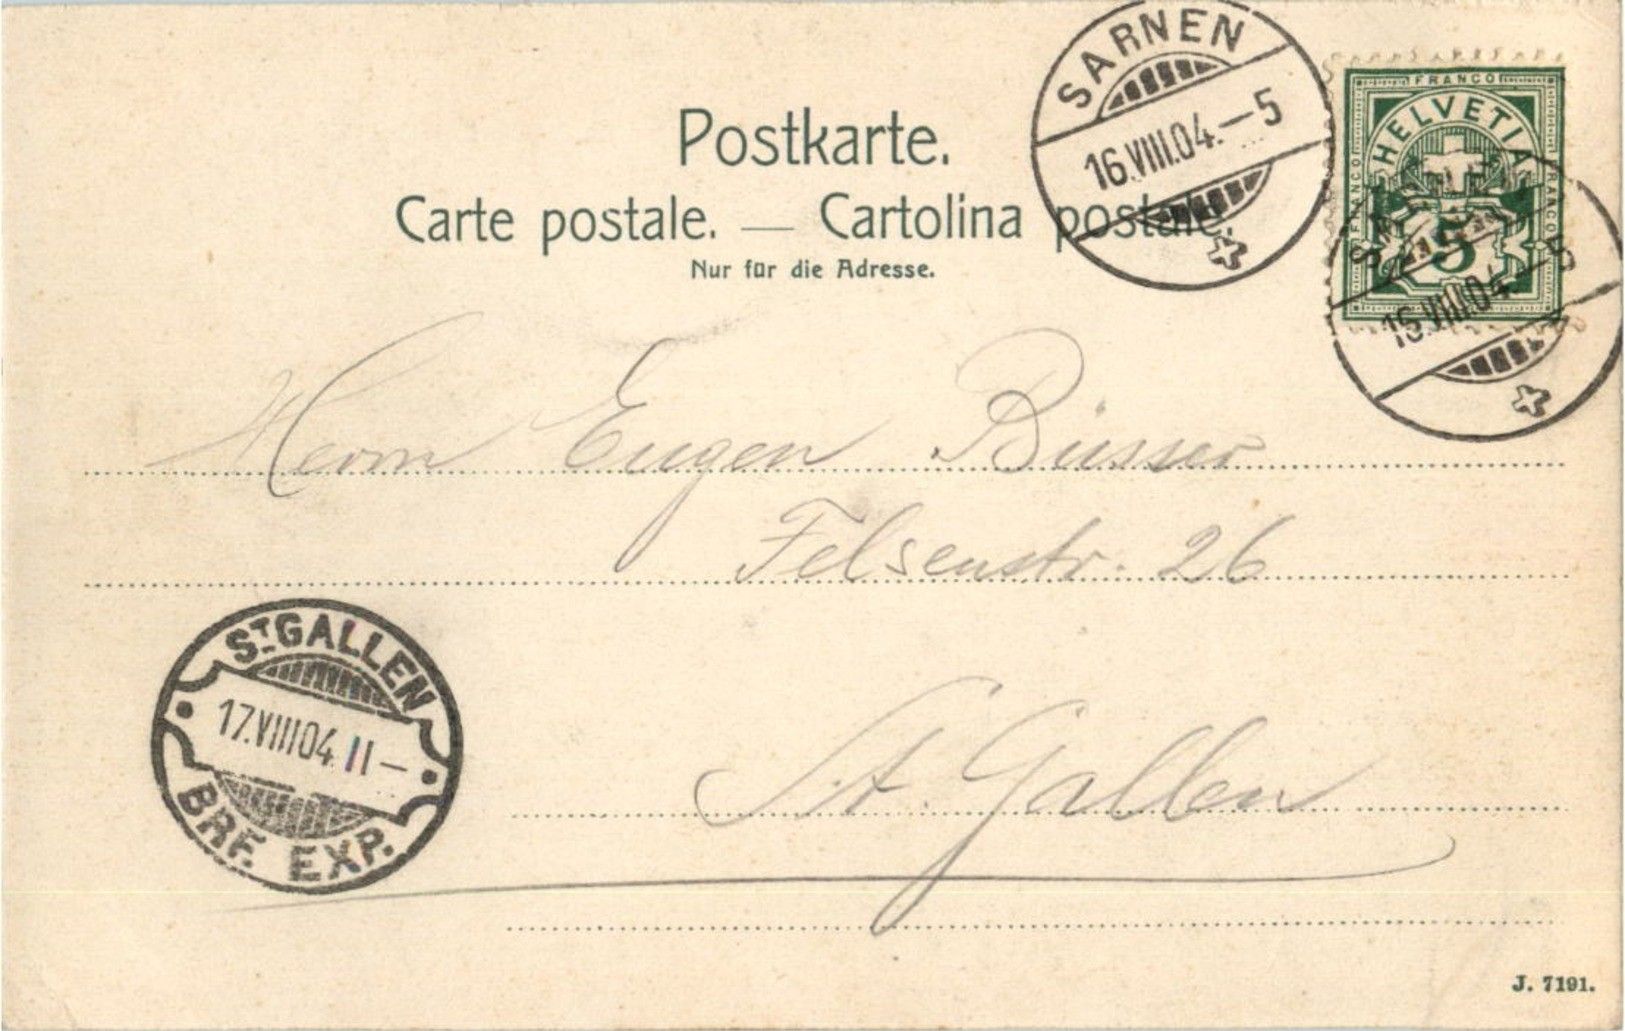 Postkarte.
Carte postale. — Cartolina postale.
Nur für die Adresse.
SARNEN
16.VIII.04.–5
FRANCO
HELVETIA
FRANCO
FRANCO
5
SARNEN
16.VIII.04.–5
Herrn Eugen Büsser
Felsenstr. 26
St. Gallen
ST. GALLEN
17.VIII04 11–
BRF. EXP.
J. 7191.